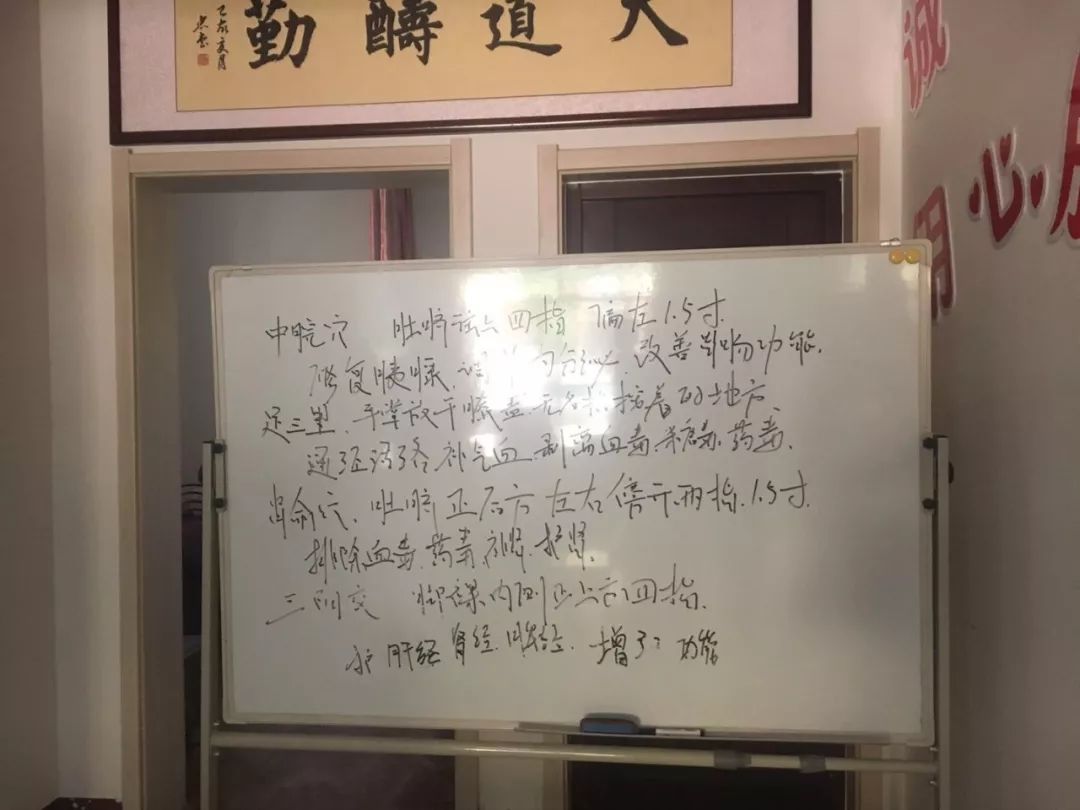 天道酬勤
诚
用心服
中脘穴 肚脐 上四指 偏左1.5寸.
修复胰腺, 分泌, 改善胃肠功能.
足三里, 手掌放于膝盖.无名指挨着的地方
通经活络 补气血.剥离血毒.糖毒.药毒.
肾俞穴, 肚脐正后方 左右傍开两指.1.5寸.
排除血毒.药毒.补肾.护肾.
三阴交 脚踝内侧正上方四指.
护肝经肾经.脾经. 增 功能